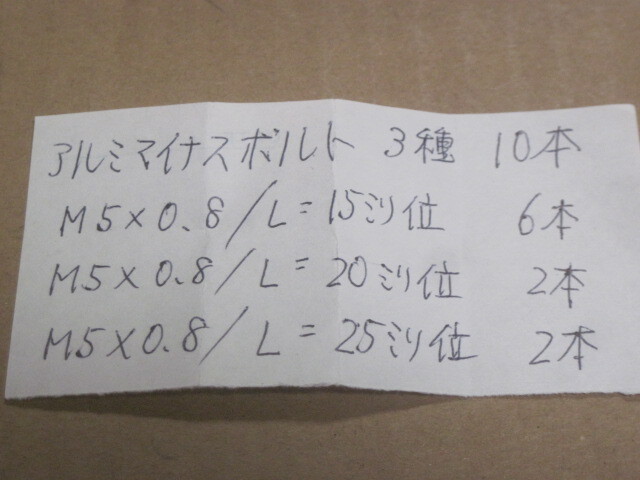 アルミマイナスボルト 3種 10本
M5×0.8/L=15ミリ位 6本
M5×0.8/L=20ミリ位 2本
M5×0.8/L=25ミリ位 2本